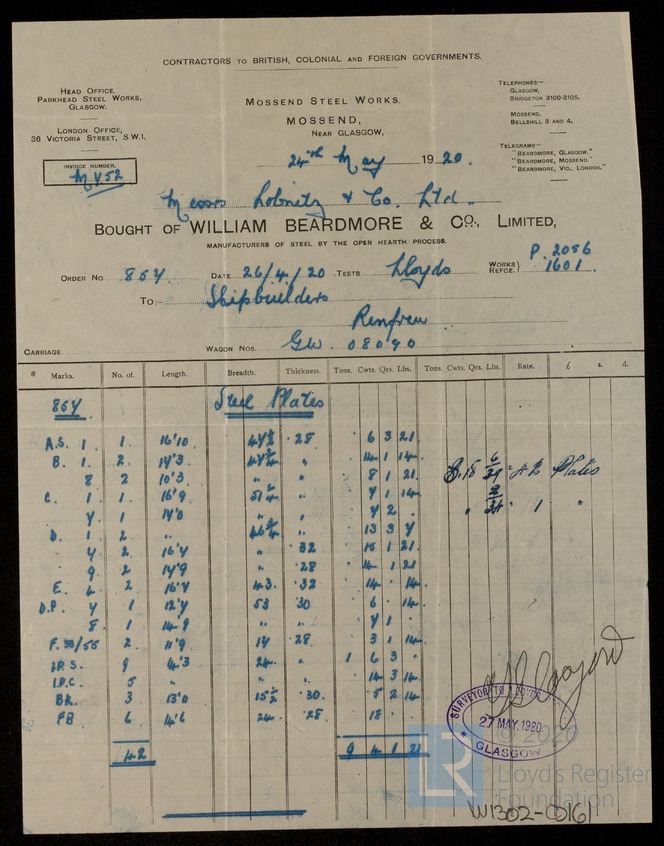 CONTRACTORS TO BRITISH, COLONIAL AND FOREIGN GOVERNMENTS.
HEAD OFFICE,
PARKHEAD STEEL WORKS,
GLASGOW.
LONDON OFFICE,
36 VICTORIA STREET, S.W.1.
INVOICE NUMBER.
MOSSEND STEEL WORKS.
MOSSEND,
NEAR GLASGOW,
24th May 1920.
TELEPHONES—
GLASGOW,
BRIDGETON 3100-3105.
MOSSEND,
BELLSHILL 3 AND 4.
TELEGRAMS—
"BEARDMORE, GLASGOW."
"BEARDMORE, MOSSEND."
"BEARDMORE, VIC., LONDON."
Messrs Lobnitz & Co. Ltd.
BOUGHT OF WILLIAM BEARDMORE & CO., LIMITED,
MANUFACTURERS OF STEEL BY THE OPEN HEARTH PROCESS.
ORDER NO. 854 DATE 26/4/20 TESTS Lloyds WORKS REFCE. P.2056 1601.
TO:- Shipbuilders
Renfrew
CARRIAGE WAGON NOS. GW. 08090
Marks. No. of. Length. Breadth. Thickness. Tons. Cwts. Qrs. Lbs. Tons. Cwts. Qrs. Lbs. Rate. £ s. d.
854 Steel Plates
A.S. 1 1 16'10 28 6 3 21
B. 1. 2 14 1 14
8 2 10'3 " " 8 1 21
C. 1 1 16'9 1 14
1 2
D. 1 2 " 13 3
2 " 32 15 1 21
9 2 " 28 14 1 21
E. 2 43 32 14 14
D.P. 1 53 30 6 14
8 1 " " 1
F. 2 11'9 28 3 1 14
I.P.S. 9 4'3 24 " 1 6 3
I.P.C. 5 " " " 14 3 14
BK. 3 13'0 15½ 30 5 2 14
FB 6 4'6 24 28 18
42 9 4 1 21
Plates
" 1 "
SURVEYOR TO LLOYDS
27 MAY. 1920
GLASGOW
© 2020
LR
Lloyd's Register
Foundation
W1302-0161